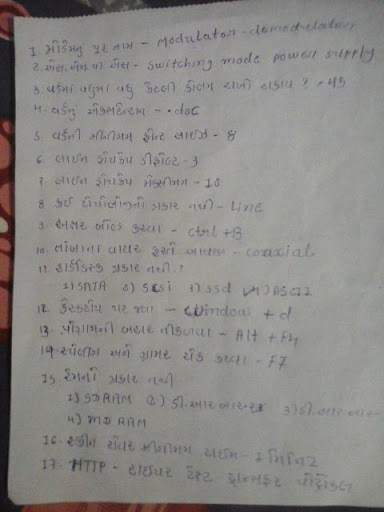 1. મોડેમનુ પુરૂ નામ - Modulator - demodulator
2. એસ.એમ.પી.એસ - Switching mode power supply
3. વર્ડમાં વધુમાં વધુ કેટલી કોલમ રાખી શકાય ? - 45
4. વર્ડનું એક્સટેન્શન - .doc
5 વર્ડની મીનીમમ ફોન્ટ સાઈઝ - 8
6 લાઈન ડ્રોપકેપ ડીફોલ્ટ - 3
7. લાઈન ડ્રોપકેપ મેક્સીમમ - 10
8 કઈ ટોપોલોજીનો પ્રકાર નથી - Line
9. અક્ષર બોલ્ડ કરવા - ctrl + B
10. તાંબાના વાયર ફરતે આવરણ - coaxial
11. હાર્ડડિસ્ક પ્રકાર નથી ?
1) SATA 2) SCSI 3) SSD 4) ASCII
12. ડેસ્કટોપ પર જવા - Window + d
13. પ્રોગ્રામની બહાર નીકળવા - Alt + F4
14. સ્પેલીંગ અને ગ્રામર ચેક કરવા - F7
15 રેમનો પ્રકાર નથી
1) SDRAM 2) ડી.આર.આર 3) ડી.આર.આર
4) RAM
16. સ્ક્રીન સેવર મીનીમમ ટાઈમ - 1 મિનિટ
17. HTTP - હાઈપર ટેક્સ્ટ ટ્રાન્સફર પ્રોટોકોલ